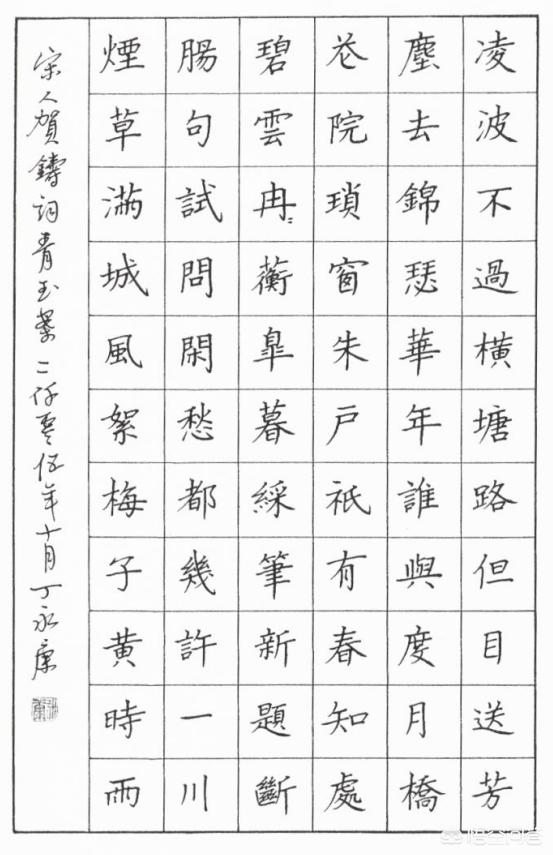 凌波不過橫塘路但目送芳
塵去錦瑟華年誰與度月橋
花院瑣窗朱戶祇有春知處
碧雲冉〻蘅皋暮綵筆新題斷
腸句試問閑愁都幾許一川
煙草滿城風絮梅子黃時雨
宋人賀鑄詞青玉案二仟零伍年十月丁永康
悟空问答